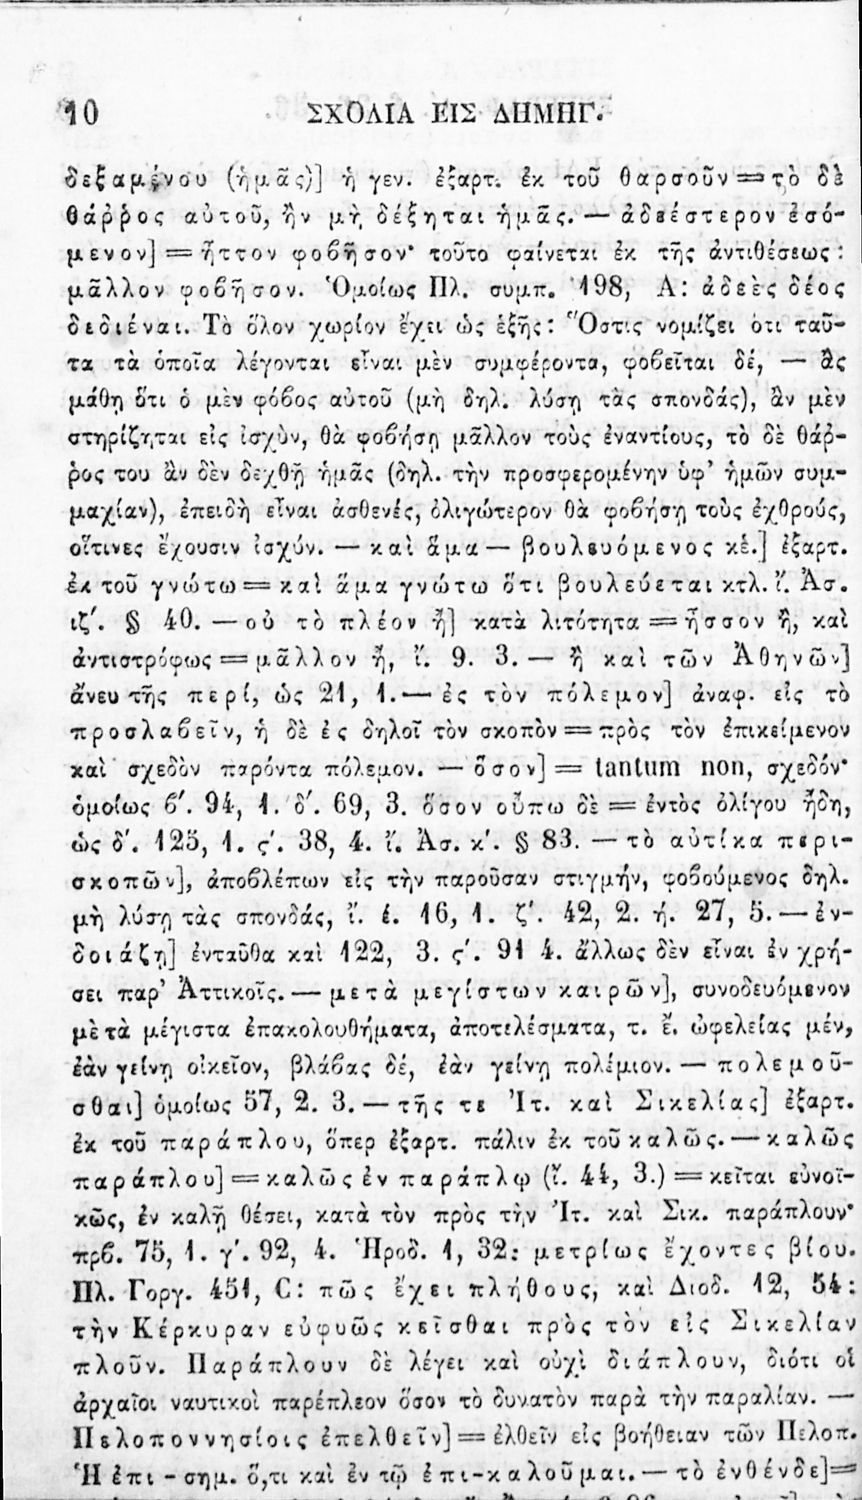 10 ΣΧΟΛΙΑ ΕΙΣ ΔΗΜΗΓ.
δεξαμένου (ἡμᾶς)] ἡ γεν. ἐξαρτ. ἐκ τοῦ θαρσοῦν = τὸ δὲ
θάῤῥος αὐτοῦ, ἢν μὴ δέξηται ἡμᾶς. — ἀδεέστερον ἐσό-
μενον] = ἧττον φοβῆσον· τοῦτο φαίνεται ἐκ τῆς ἀντιθέσεως:
μᾶλλον φοβῆσον. Ὁμοίως Πλ. συμπ. 198, Α: ἀδεὲς δέος
δεδιέναι. Τὸ ὅλον χωρίον ἔχει ὡς ἑξῆς: Ὅστις νομίζει ὅτι ταῦ-
τα τὰ ὁποῖα λέγονται εἶναι μὲν συμφέροντα, φοβεῖται δέ, — ἂς
μάθῃ ὅτι ὁ μὲν φόβος αὐτοῦ (μὴ δηλ. λύσῃ τὰς σπονδάς), ἂν μὲν
στηρίζηται εἰς ἰσχὺν, θὰ φοβήσῃ μᾶλλον τοὺς ἐναντίους, τὸ δὲ θάῤ-
ῥος του ἂν δὲν δεχθῇ ἡμᾶς (δηλ. τὴν προσφερομένην ὑφ’ ἡμῶν συμ-
μαχίαν), ἐπειδὴ εἶναι ἀσθενές, ὀλιγώτερον θὰ φοβήσῃ τοὺς ἐχθρούς,
οἵτινες ἔχουσιν ἰσχύν. — καὶ ἅμα — βουλευόμενος κἑ.] ἐξαρτ.
ἐκ τοῦ γνώτω = καὶ ἅμα γνώτω ὅτι βουλεύεται κτλ. ἴ. Ἀσ.
ιζ′. § 40. — οὐ τὸ πλέον ἢ] κατὰ λιτότητα = ἧσσον ἢ, καὶ
ἀντιστρόφως = μᾶλλον ἢ, ἴ. 9. 3. — ἢ καὶ τῶν Ἀθηνῶν]
ἄνευ τῆς περί, ὡς 21, 1. — ἐς τὸν πόλεμον] ἀναφ. εἰς τὸ
προσλαβεῖν, ἡ δὲ ἐς δηλοῖ τὸν σκοπὸν = πρὸς τὸν ἐπικείμενον
καὶ σχεδὸν παρόντα πόλεμον. — ὅσον] = tantum non, σχεδόν·
ὁμοίως β′. 94, 1. δ′. 69, 3. ὅσον οὔπω δὲ = ἐντὸς ὀλίγου ἤδη,
ὡς δ′. 125, 1. ς′. 38, 4. ἴ. Ἀσ. κ′. § 83. — τὸ αὐτίκα περι-
σκοπῶν], ἀποβλέπων εἰς τὴν παροῦσαν στιγμήν, φοβούμενος δηλ.
μὴ λύσῃ τὰς σπονδάς, ἴ. έ. 16, 1. ζ′. 42, 2. ή. 27, 5. — ἐν-
δοιάζῃ] ἐνταῦθα καὶ 122, 3. ς′. 91 4. ἄλλως δὲν εἶναι ἐν χρή-
σει παρ’ Ἀττικοῖς. — μετὰ μεγίστων καιρῶν], συνοδευόμενον
μὲ τὰ μέγιστα ἐπακολουθήματα, ἀποτελέσματα, τ. ἔ. ὠφελείας μέν,
ἐὰν γείνῃ οἰκεῖον, βλάβας δέ, ἐὰν γείνῃ πολέμιον. — πολεμοῦ-
σθαι] ὁμοίως 57, 2. 3. — τῆς τε Ἰτ. καὶ Σικελίας] ἐξαρτ.
ἐκ τοῦ παράπλου, ὅπερ ἐξαρτ. πάλιν ἐκ τοῦ καλῶς. — καλῶς
παράπλου] = καλῶς ἐν παράπλῳ (ἴ. 44, 3.) = κεῖται εὐνοϊ-
κῶς, ἐν καλῇ θέσει, κατὰ τὸν πρὸς τὴν Ἰτ. καὶ Σικ. παράπλουν·
πρβ. 75, 1. γ′. 92, 4. Ἡροδ. 1, 32: μετρίως ἔχοντες βίου.
Πλ. Γοργ. 451, C: πῶς ἔχει πλήθους; καὶ Διοδ. 12, 54:
τὴν Κέρκυραν εὐφυῶς κεῖσθαι πρὸς τὸν εἰς Σικελίαν
πλοῦν. Παράπλουν δὲ λέγει καὶ οὐχὶ διάπλουν, διότι οἱ
ἀρχαῖοι ναυτικοὶ παρέπλεον ὅσον τὸ δυνατὸν παρὰ τὴν παραλίαν. —
Πελοποννησίοις ἐπελθεῖν] = ἐλθεῖν εἰς βοήθειαν τῶν Πελοπ.
Ἡ ἐπι - σημ. ὅ,τι καὶ ἐν τῷ ἐπι-καλοῦμαι. — τὸ ἐνθένδε] =